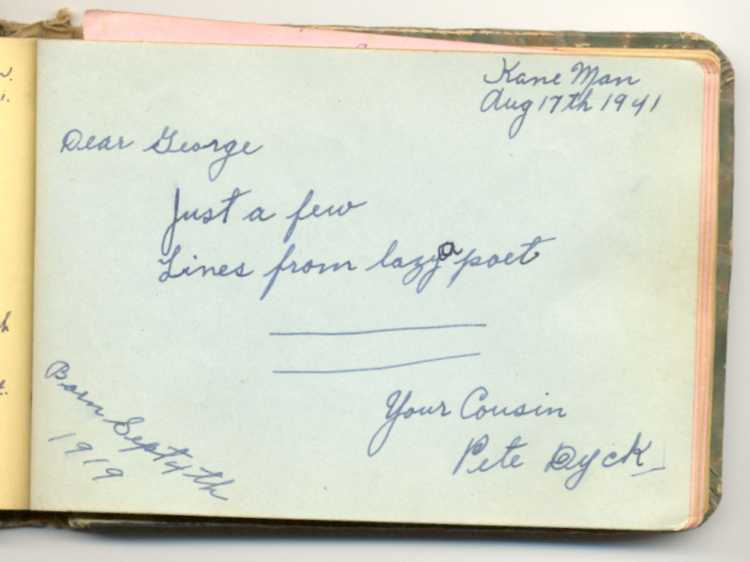 Kane Man
Aug 17th 1941
Dear George
Just a few
Lines from lazy a poet
Your Cousin
Pete Dyck
Born Sept 4th
1919